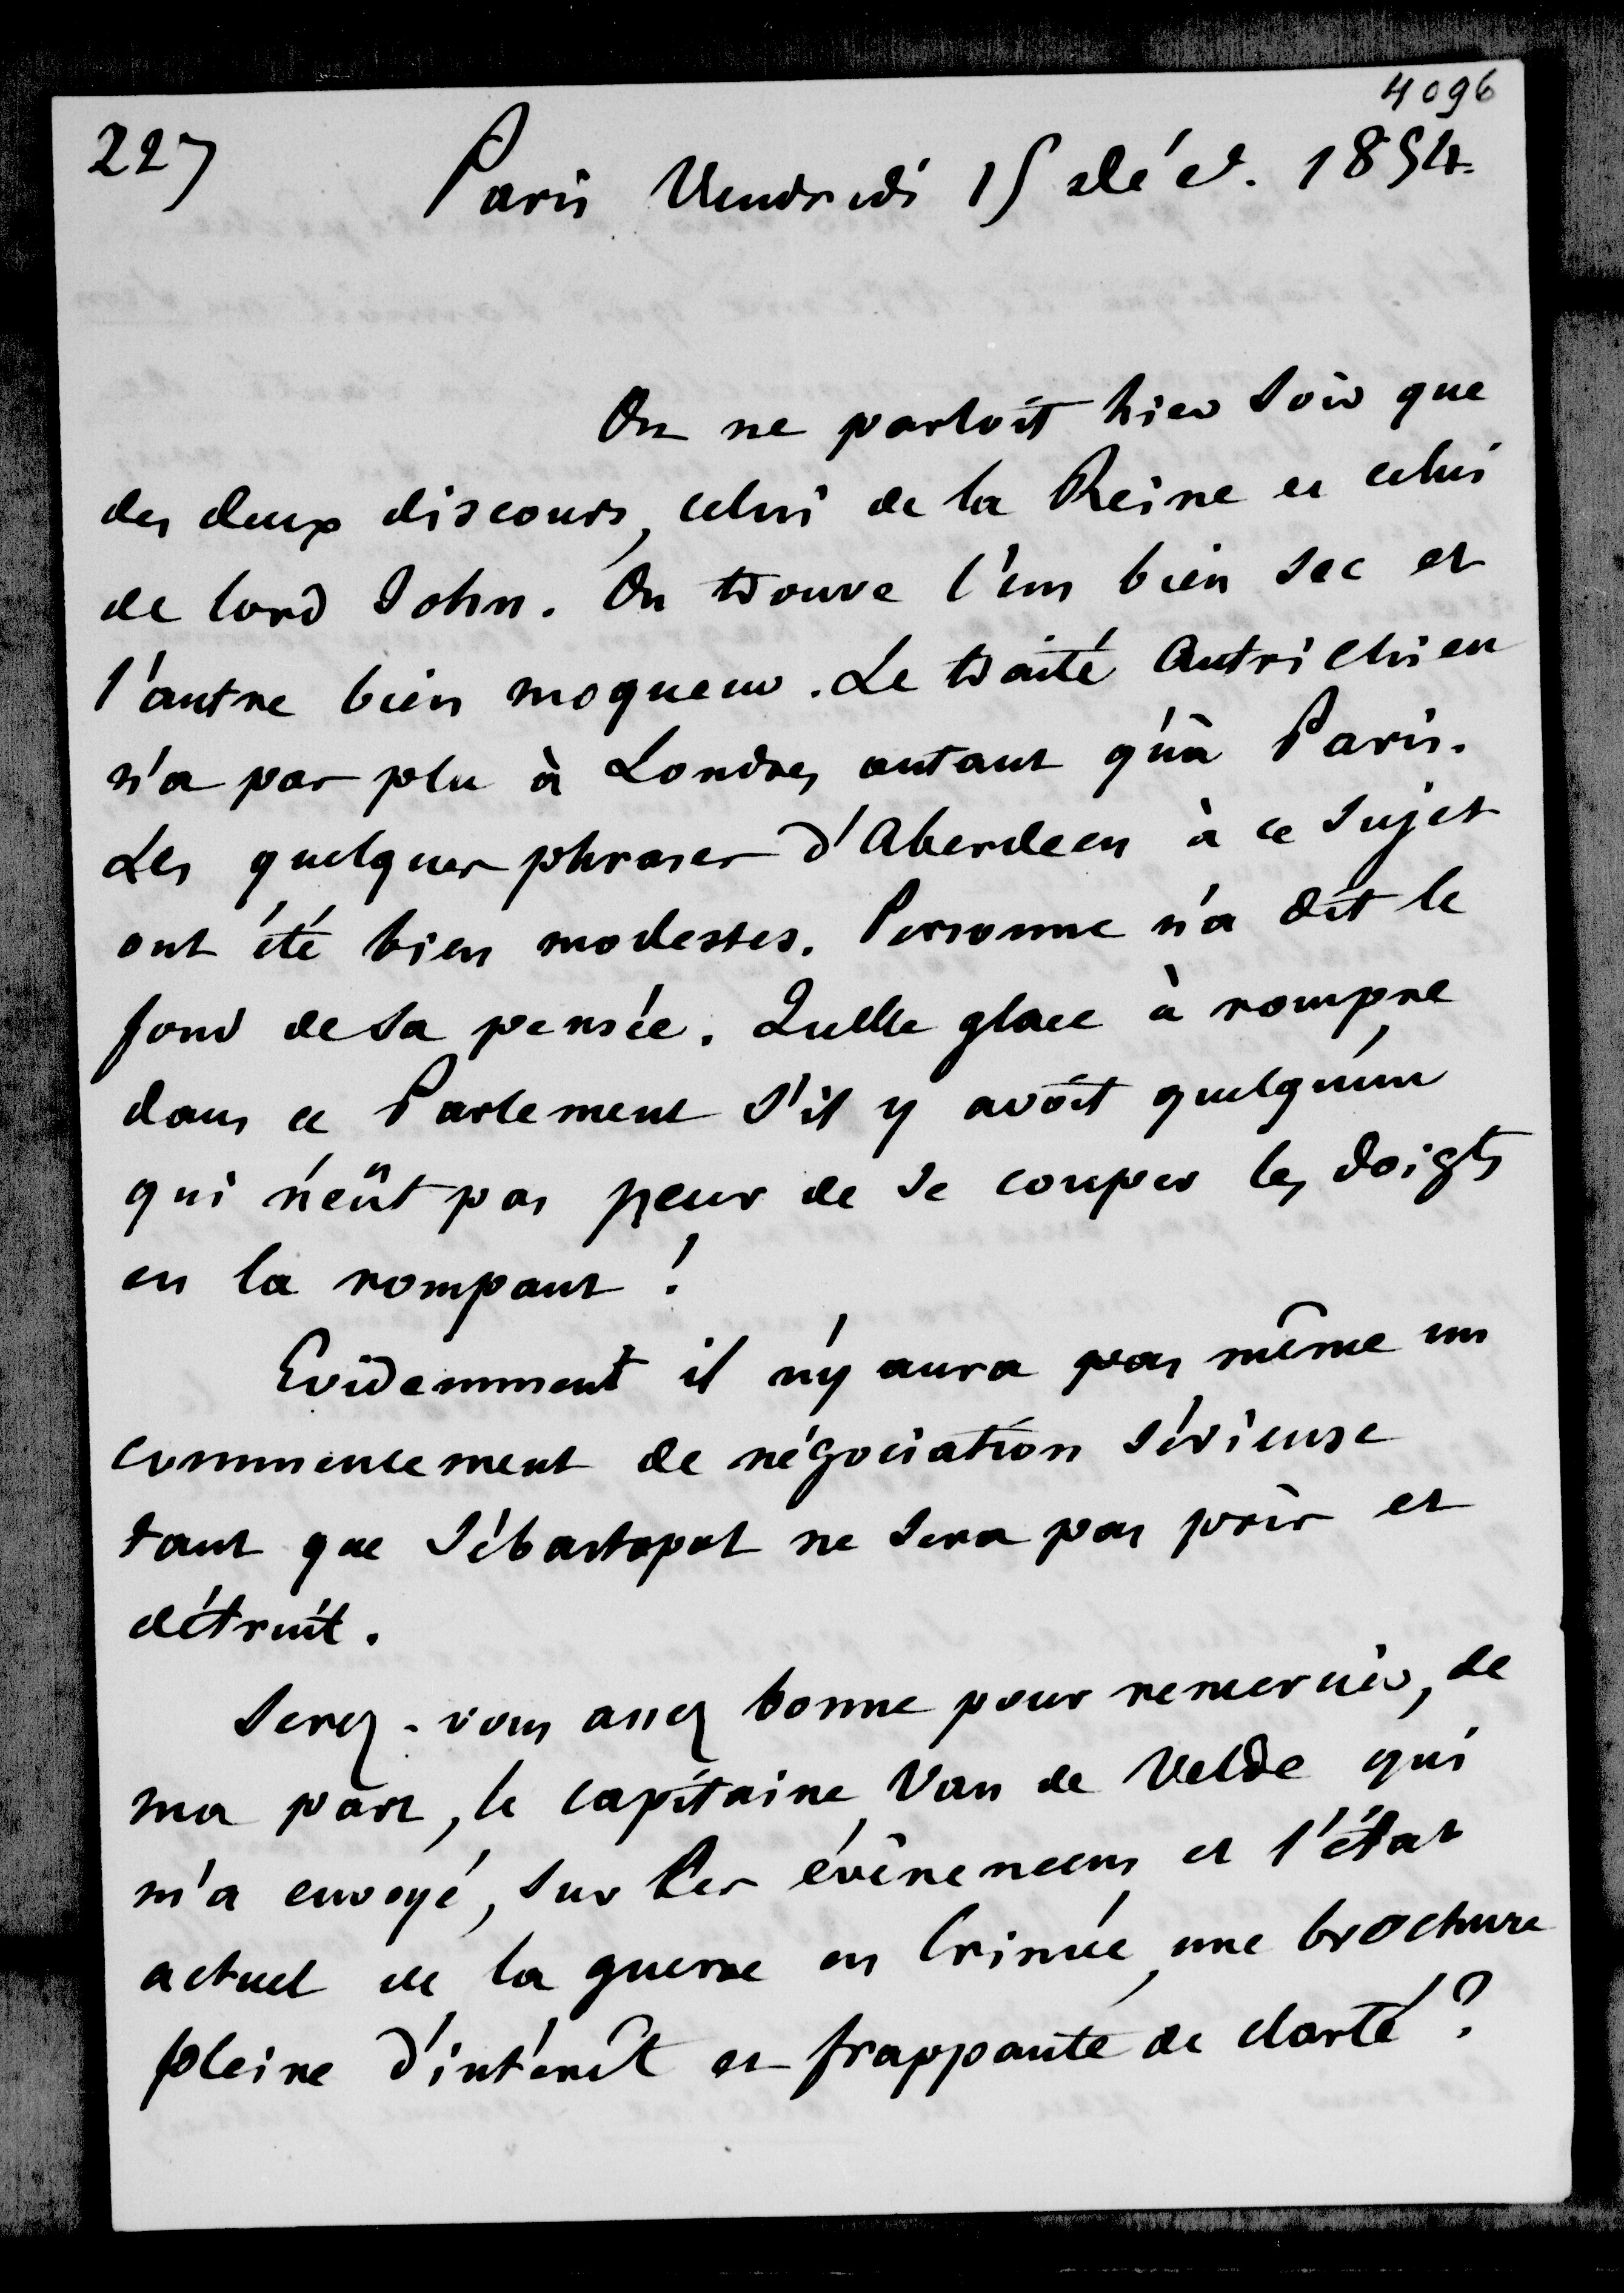 4096
227 Paris Vendredi 15 Déc. 1854.
On ne parloit hier soir que
des deux discours, celui de la Reine et celui
de lord John. On trouve l'un bien sec et
l'autre bien moqueur. Le traité Autrichien
n'a pas plu à Londres autant qu'à Paris.
Les quelques phrases d'Aberdeen à ce sujet
ont été bien modestes. Personne n'a dit le
fond de sa pensée. Quelle glace à rompre
dans ce Parlement s'il y avoit quelqu'un
qui n'eût pas peur de se couper les doigts
en la rompant !
Evidemment il n'y aura pas même un
commencement de négociation sérieuse
tant que Sébastopol ne sera pas pris et
détruit.
Serez-vous assez bonne pour remercier, de
ma part, le capitaine Van de Velde qui
m'a envoyé, sur les évènemens et l'état
actuel de la guerre en Crimée, une brochure
pleine d'intérêt et frappante de clarté ?